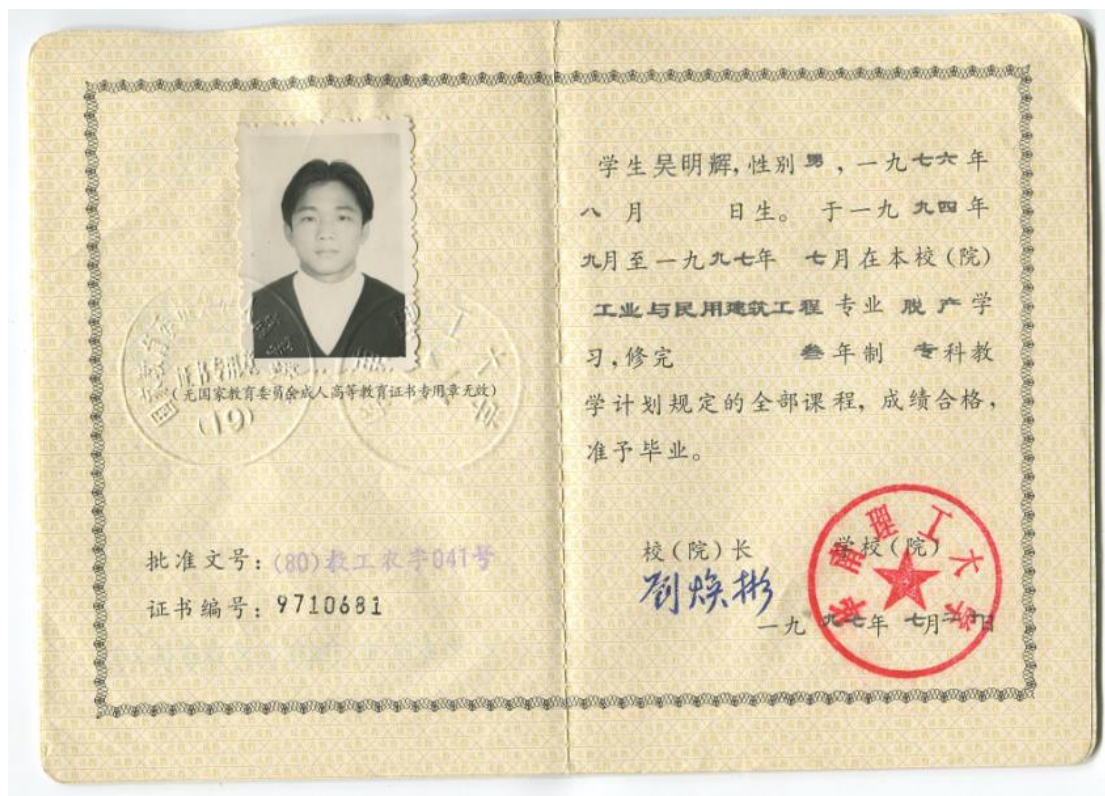 (无国家教育委员会成人高等教育证书专用章无效)
证书专用章
(19)
批准文号:(80)教工农字041号
证书编号:9710681
学生吴明辉,性别男,一九七六年
八月 日生。于一九九四年
九月至一九九七年 七月在本校(院)
工业与民用建筑工程专业 脱产学
习,修完 叁年制 专科教
学计划规定的全部课程,成绩合格,
准予毕业。
校(院)长 学校(院)
刘焕彬
华南理工大学
一九九七年 七月 日